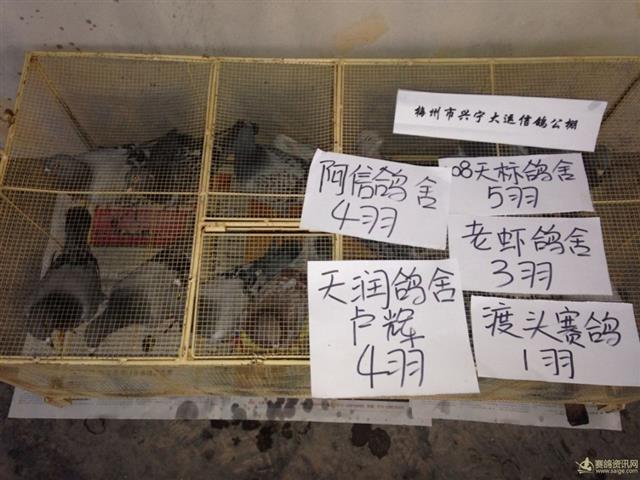 梅州市兴宁大运信鸽公棚
阿信鸽舍
4羽
08天标鸽舍
5羽
老虾鸽舍
3羽
天润鸽舍
卢辉
4羽
渡头赛鸽
1羽
赛鸽资讯网
www.saige.com